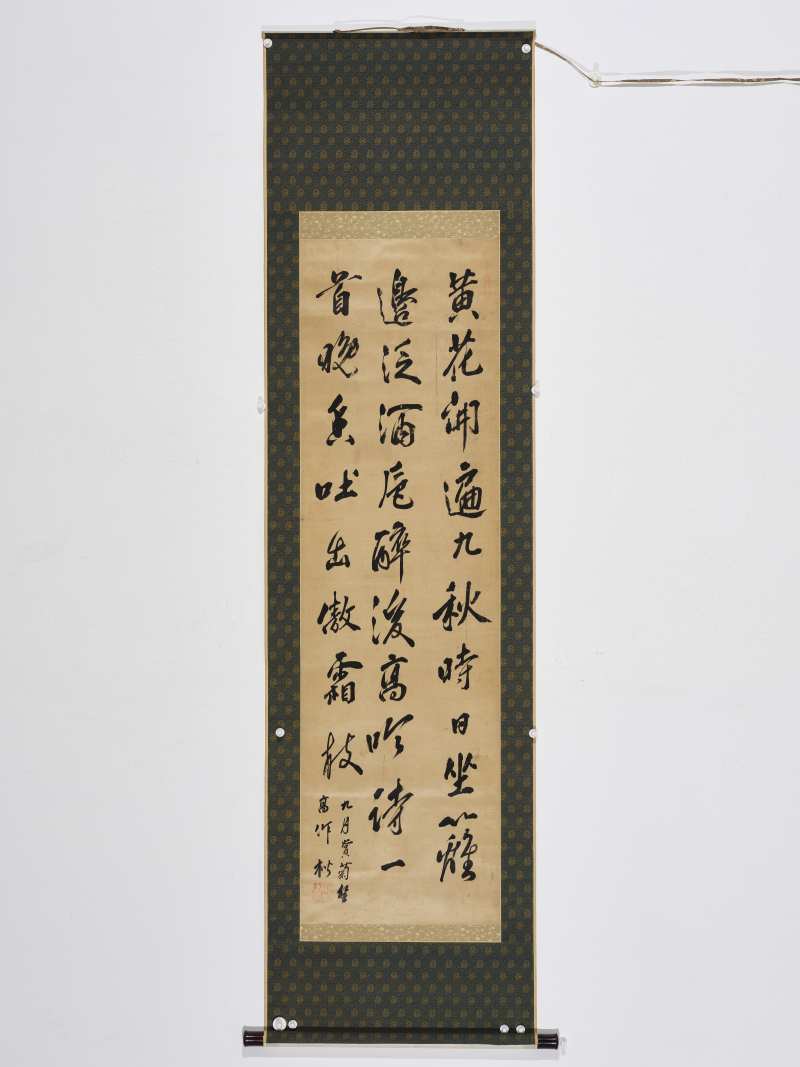 黄花開遍九秋時日坐籬
邊泛酒巵醉後高吟詩一
首晚香吐出傲霜枝
九月賞菊
高作